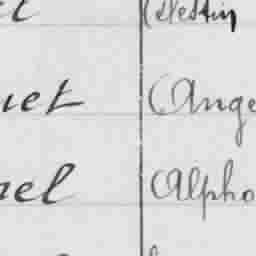 Célestin
uet Ange
nel Alpho